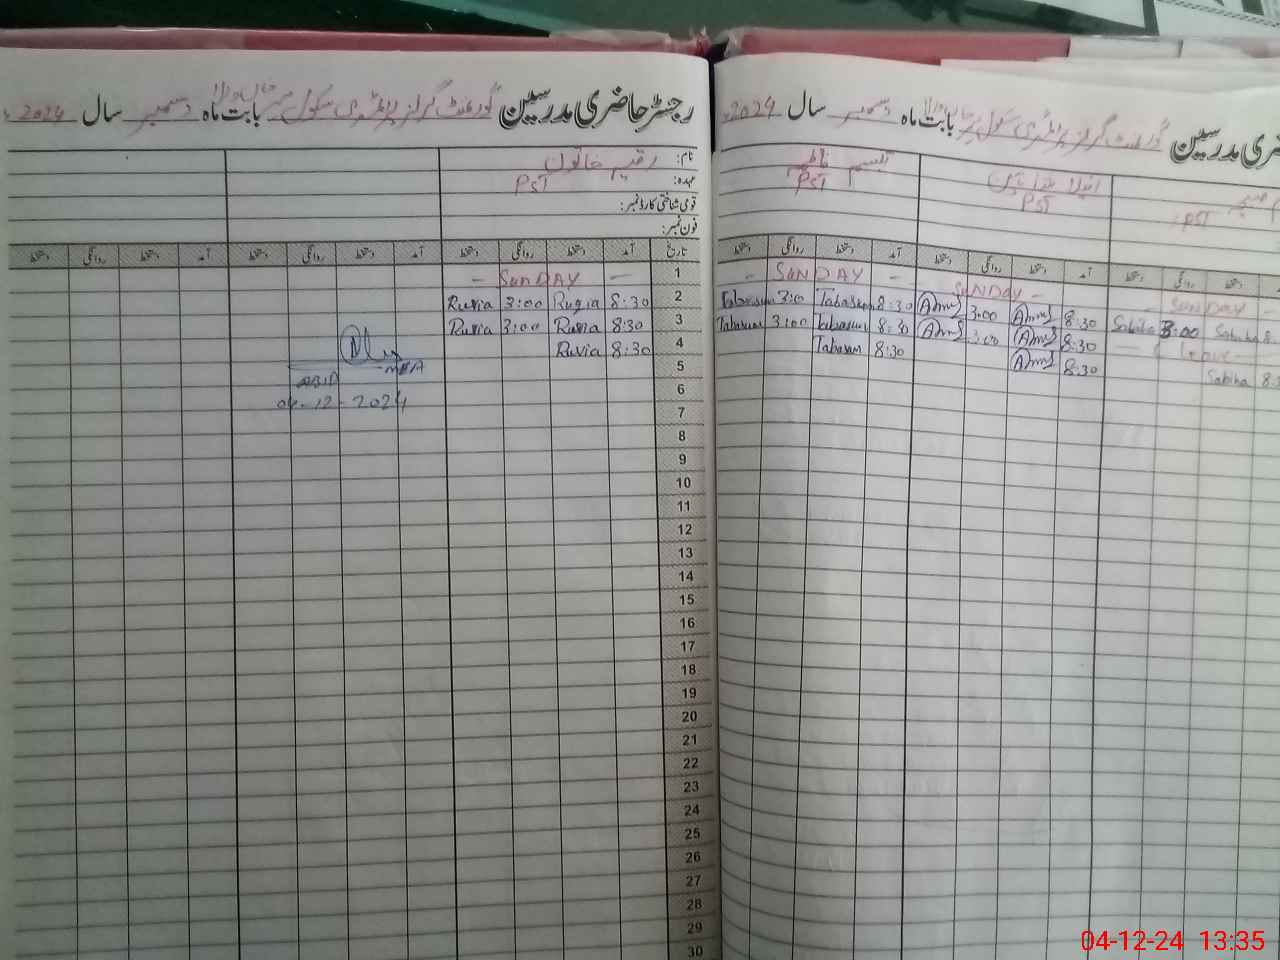 رجسٹر حاضری مدرسین گورنمنٹ گرلز پرائمری سکول بابت ماہ دسمبر سال 2024ء
نام: رقیہ خاتون
عہدہ: PST
قومی شناختی کارڈ نمبر:
فون نمبر:
تاریخ آمد دستخط روانگی دستخط آمد دستخط روانگی دستخط آمد دستخط روانگی دستخط
1 — SUNDAY —
2 8:30 Ruqia 3:00 Ruqia
3 8:30 Ruqia 3:00 Ruqia
4 8:30 Ruqia
5
6
7
8
9
10
11
12
13
14
15
16
17
18
19
20
21
22
23
24
25
26
27
28
29
30
MEA
04-12-2024
ری مدرسین گورنمنٹ گرلز پرائمری سکول بابت ماہ دسمبر سال 2024ء
تبسم
PST PST PST
آمد دستخط روانگی دستخط آمد دستخط روانگی دستخط دستخط روانگی دستخط
— SUNDAY — SUNDAY — SUNDAY —
Sabiha 3:00 Sabiha 8:30 3:00 8:30 Tabasum 3:0 Tabasum
— Leave — 8:30 3:00 8:30 Tabasum 3:00 Tabasum
Sabiha 8:30 8:30 Tabasum
04-12-24 13:35